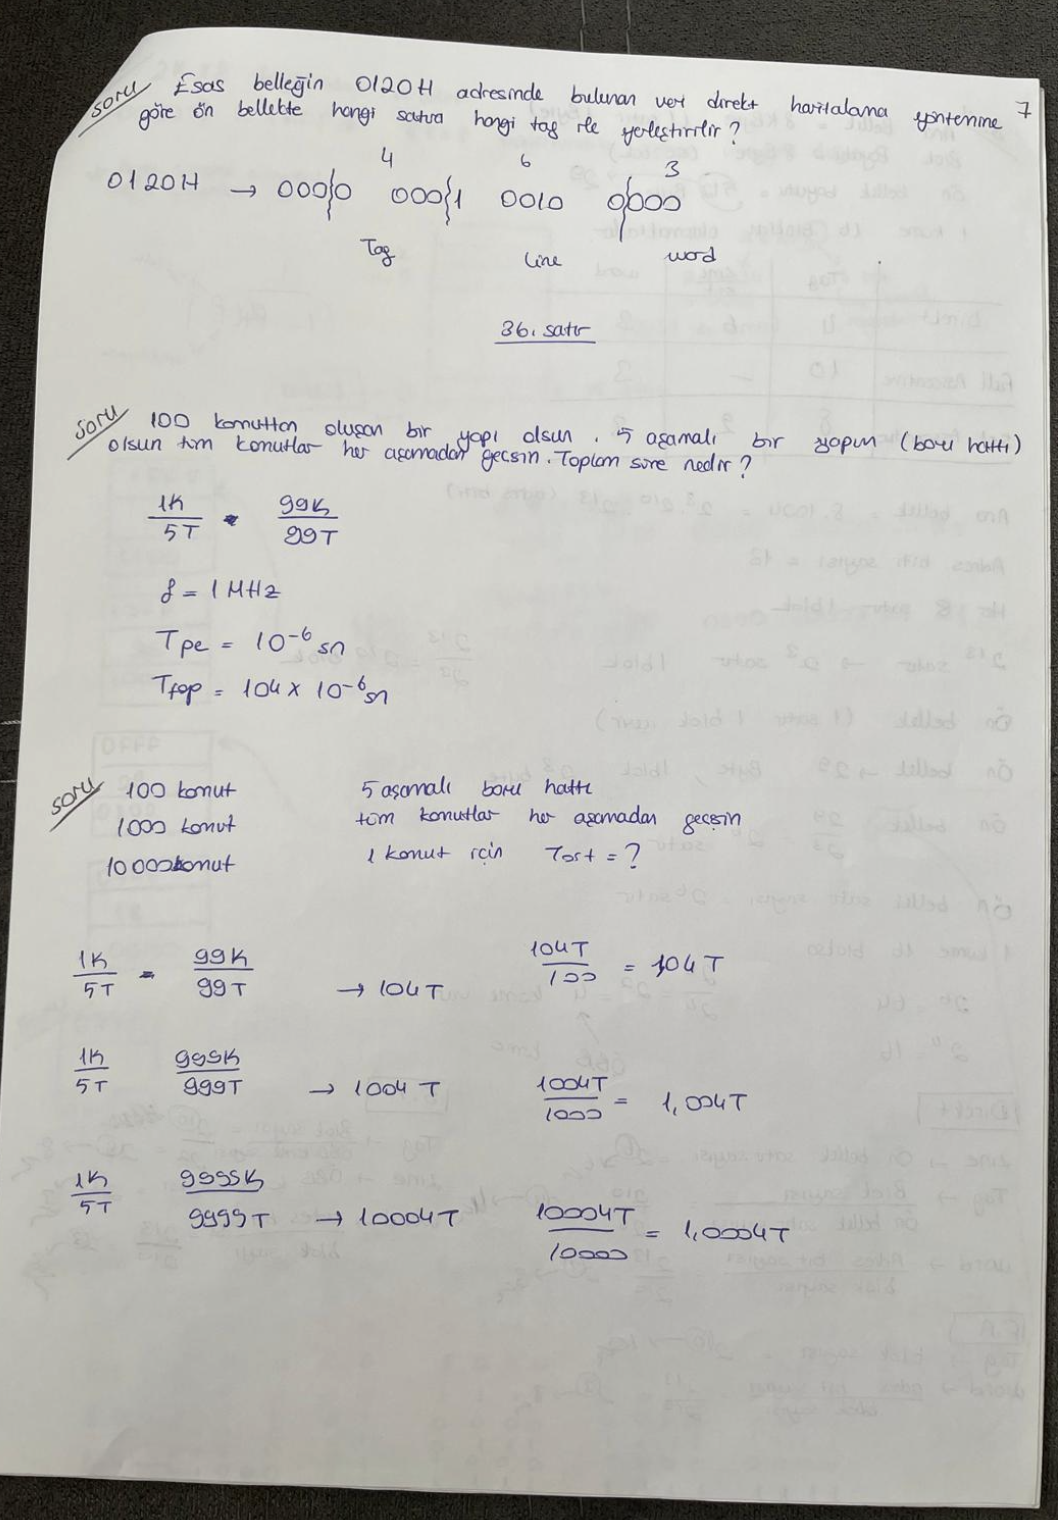 7
soru Esas belleğin 0120H adresinde bulunan veri direkt haritalama yöntemine
göre ön bellekte hangi satıra hangi tag ile yerleştirilir?
4 6 3
0120H → 000{0 000{1 0010 0{000
Tag Line word
36. satır
soru 100 komuttan oluşan bir yapı olsun. 5 aşamalı bir yapım (boru hattı)
olsun tüm komutlar her aşamadan geçsin. Toplam süre nedir?
1K/5T - 99K/99T
f = 1 MHz
Tpe = 10⁻⁶ sn
Ttop = 104 x 10⁻⁶ sn
soru 100 komut 5 aşamalı boru hattı
1000 komut tüm komutlar her aşamadan geçsin
10000 komut 1 komut için Tort = ?
1K/5T - 99K/99T → 104T 104T/100 = 1,04T
1K/5T 999K/999T → 1004T 1004T/1000 = 1,004T
1K/5T 9999K/9999T → 10004T 10004T/10000 = 1,0004T